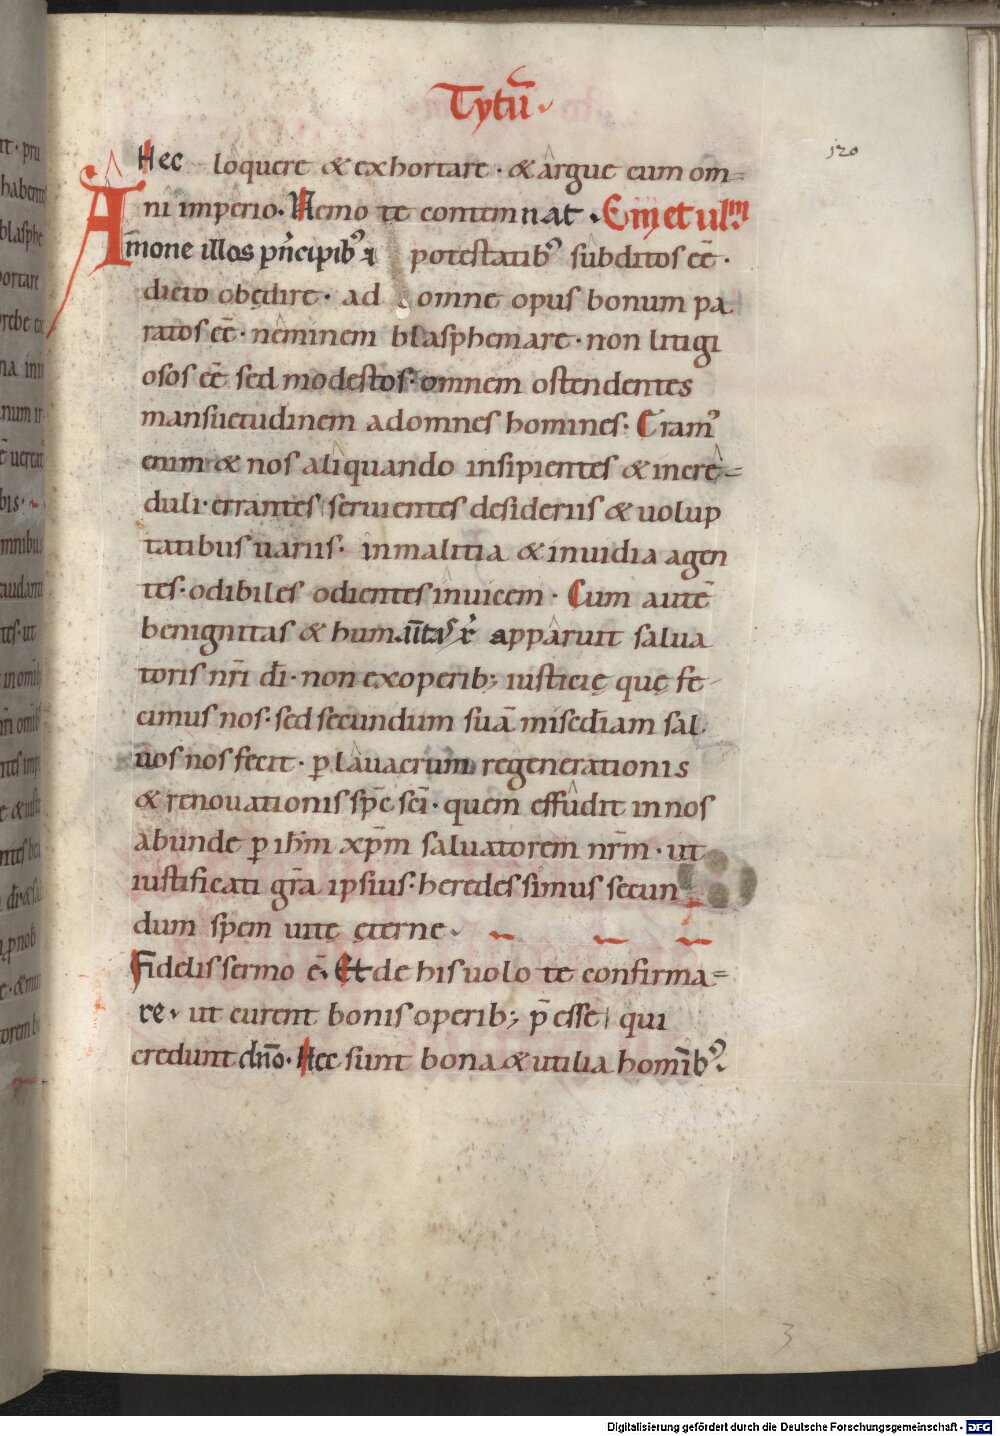 Tytū.
120
Hec loquere & exhortare · & argue cum om=
ni imperio. Nemo te contemnat.
Amone illos p'ncipib' & potestatib' subditos eē ·
dicto obędire · ad omne opus bonum pa
ratos eē · neminem blasphemare · non litigi
osos eē sed modestos · omnem ostendentes
mansuetudinem ad omnes homines · Eram'
enim & nos aliquando insipientes & incre=
duli · errantes servientes desideriis & volup
tatibus variis · in malitia & invidia agen
tes · odibiles odientes invicem · Cum autē
benignitas & humanitas apparuit salva
toris nr̄i dī · non ex operib; iusticię quę fe
cimus nos · sed secundum suā misericordiam sal
vos nos fecit · p lavacrum regenerationis
& renovationis sp̄c sc̄i · quem effudit in nos
abunde p ih̄m xp̄m salvatorem nr̄m · ut
iustificati gr̄a ipsius · heredes simus secun
dum spem vitę ęterne
Fidelis sermo ē. Et de his volo te confirma=
re · ut curent bonis operib; p̄ esse qui
credunt dn̄o · Hec sunt bona & utilia homīb'
3
it · pru
habente
blasphe
ortare
Digitalisierung gefördert durch die Deutsche Forschungsgemeinschaft - DFG